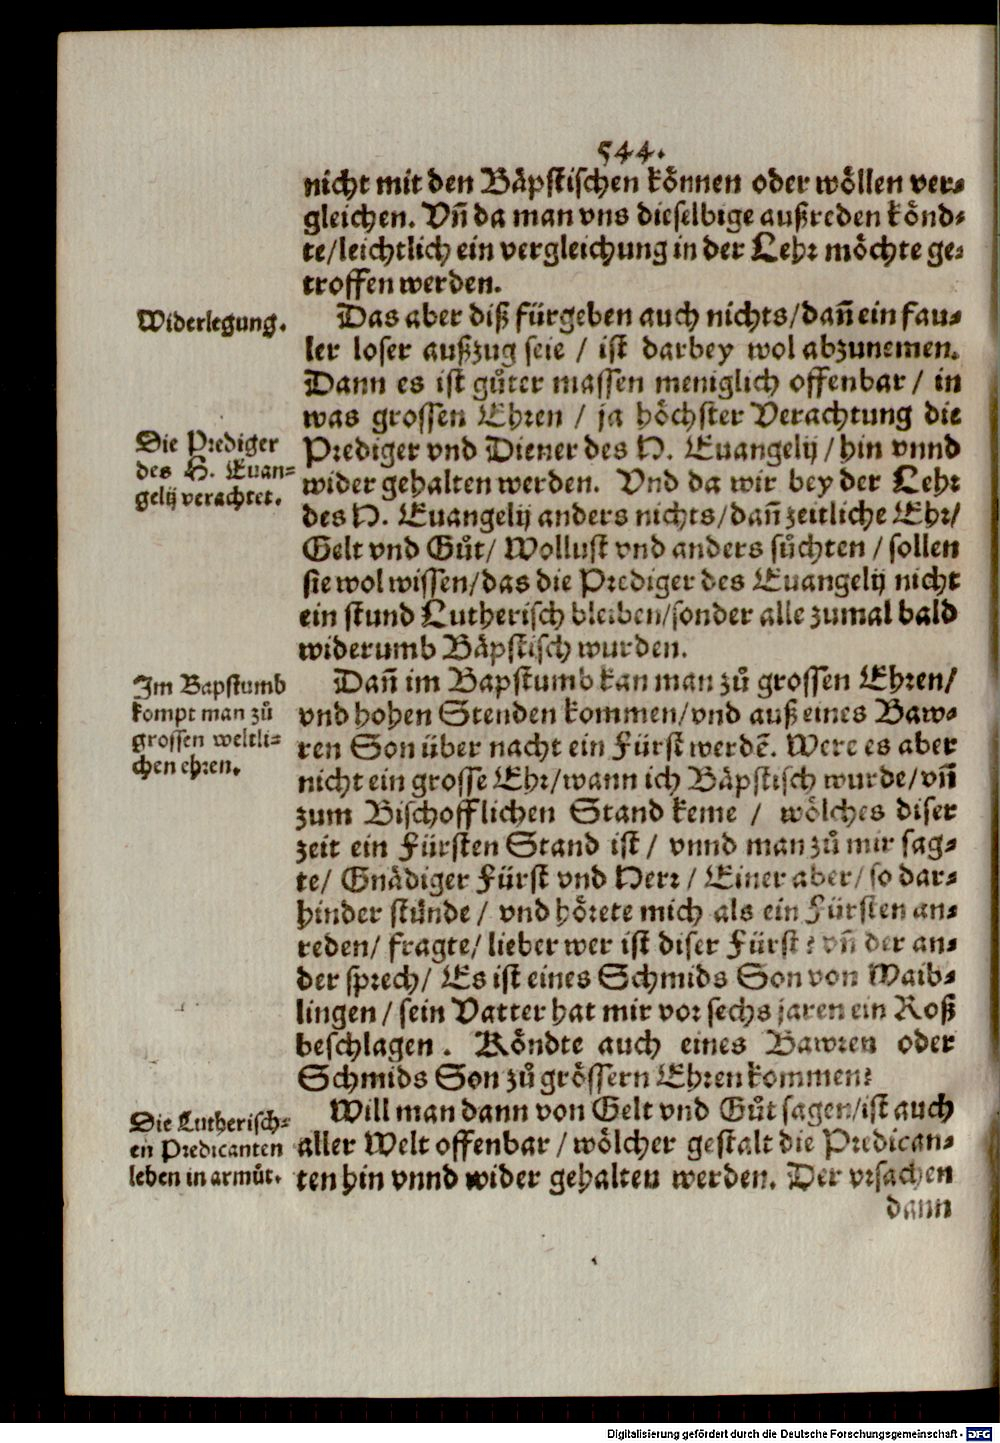 544.
nicht mit den Bäpstischen können oder wöllen ver⸗
gleichen. Vñ da man vns dieselbige außreden könd⸗
te/leichtlich ein vergleichung in der Lehr möchte ge⸗
troffen werden.
Widerlegung.
Das aber diß fürgeben auch nichts/dañ ein fau⸗
ler loser außzug seie / ist darbey wol abzunemen.
Dann es ist gůter massen meniglich offenbar / in
was grossen Ehren / ja höchster Verachtung die
Die Prediger
des H. Euan⸗
gelij verachtet.
Prediger vnd Diener des H. Euangelij / hin vnnd
wider gehalten werden. Vnd da wir bey der Lehr
des H. Euangelij anders nichts/dañ zeitliche Ehr/
Gelt vnd Gůt/ Wollust vnd anders sůchten / sollen
sie wol wissen/das die Prediger des Euangelij nicht
ein stund Lutherisch bleiben/sonder alle zumal bald
widerumb Bäpstisch wurden.
Im Bapstumb
kompt man zů
grossen weltli⸗
chen ehren.
Dañ im Bapstumb kan man zů grossen Ehren/
vnd hohen Stenden kommen/vnd auß eines Baw⸗
ren Son über nacht ein Fürst werdẽ. Were es aber
nicht ein grosse Ehr/wann ich Bäpstisch wurde/vñ
zum Bischofflichen Stand keme / wölches diser
zeit ein Fürsten Stand ist / vnnd man zů mir sag⸗
te/ Gnädiger Fürst vnd Herr / Einer aber/ so dar⸗
hinder stünde / vnd hörete mich als ein Fürsten an⸗
reden/ fragte/ lieber wer ist diser Fürst? vñ der an⸗
der sprech/ Es ist eines Schmids Son von Waib⸗
lingen / sein Vatter hat mir vor sechs jaren ein Roß
beschlagen. Köndte auch eines Bawren oder
Schmids Son zů grössern Ehren kommen?
Die Lutherisch⸗
en Predicanten
leben in armůt.
Will man dann von Gelt vnd Gůt sagen/ist auch
aller Welt offenbar / wölcher gestalt die Predican⸗
ten hin vnnd wider gehalten werden. Der vrsachen
dann
Digitalisierung gefördert durch die Deutsche Forschungsgemeinschaft - DFG